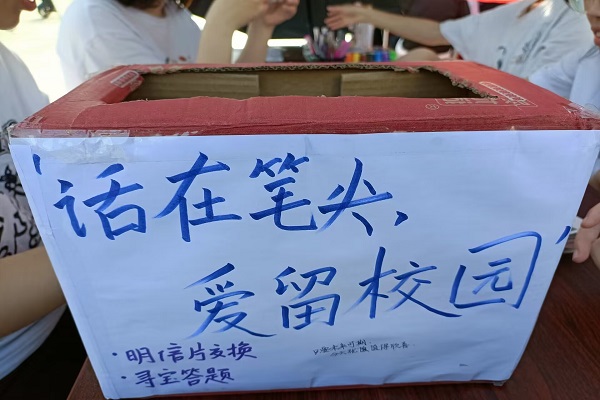 '话在笔尖,
爱留校园'
·明信片交换
·寻宝答题